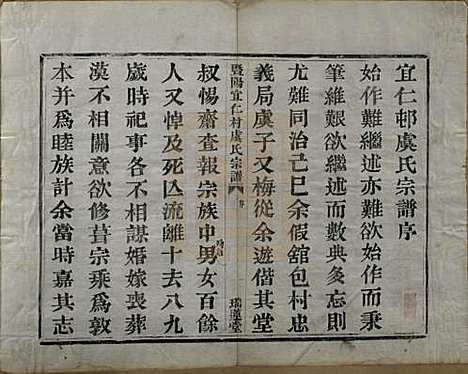 宜仁邨虞氏宗譜序
始作難繼述亦難欲始作而秉
筆維艱欲繼述而數典多忘則
尤難同治己巳余假舘包村忠
義局虞子又梅從余遊偕其堂
暨陽宜仁村虞氏宗譜
瑞蓮堂
叔惕齋查報宗族中男女百餘
人又悼及死亾流離十去八九
歲時祀事各不相謀婚嫁喪葬
漠不相關意欲修葺宗乘爲敦
本并爲睦族計余當時嘉其志